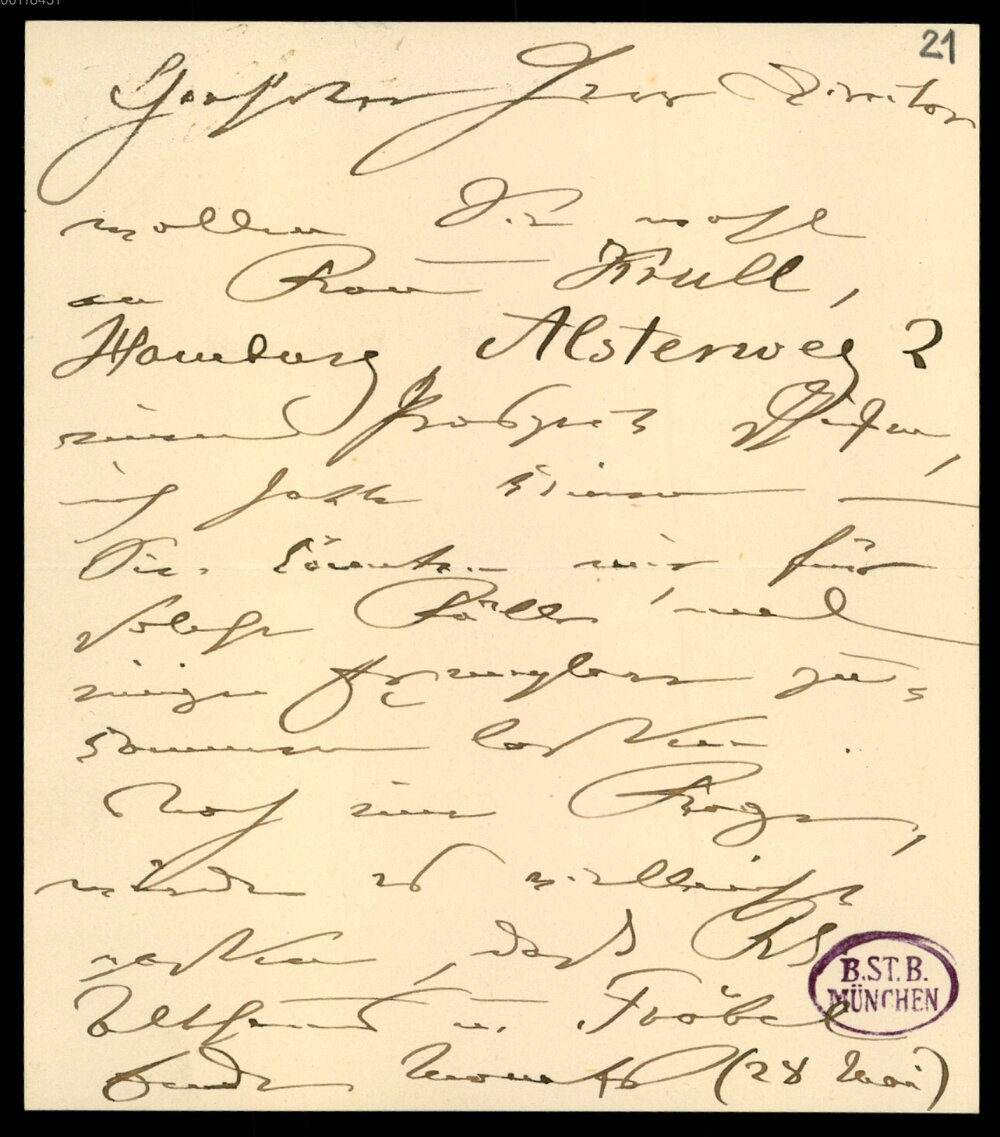 21
Geehrter Herr Direktor
wollen Sie wohl
an Frau Krull,
Hamburg, Alsterweg 2
einen Prospect schicken,
ich hatte keinen —
Sie könnten mir für
solche Fälle mal
einige Exemplare zu-
kommen lassen.
Noch eine Frage,
würde es vielleicht
passen, dass Frl
u. Fröbel
Ende Monats (28 Mai)
B.ST.B.
MÜNCHEN